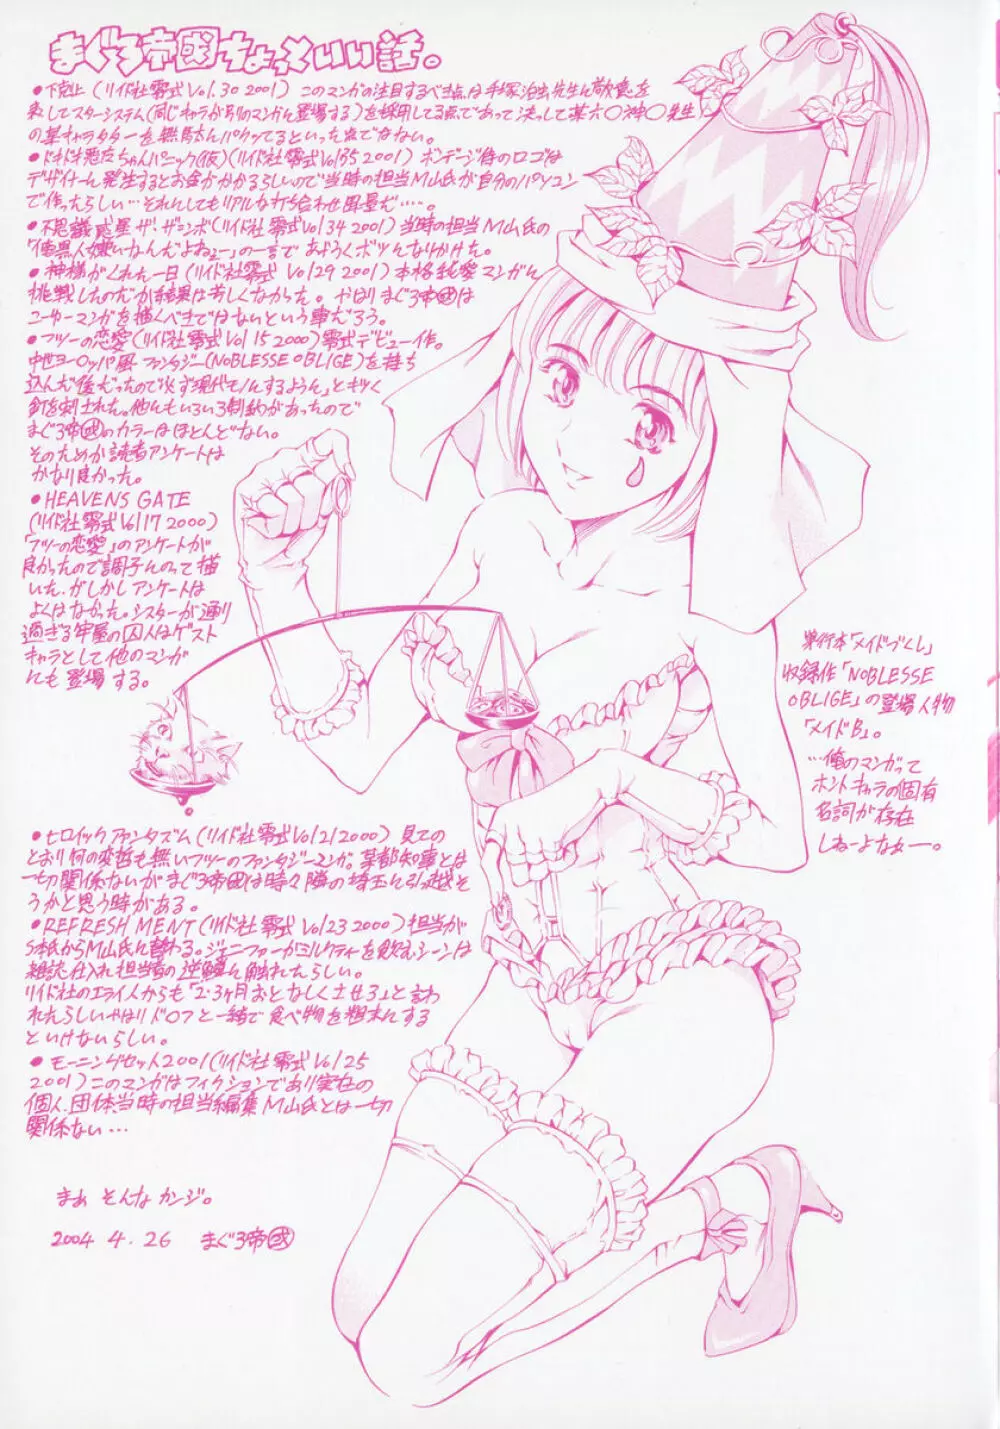 まぐろ帝國ちょっといい話。
●下剋上(リイド社零式Vol.30 2001)このマンガの注目するべき点は手塚治虫先生に敬意を
表してスターシステム(同じキャラが別のマンガに登場する)を採用してる点であって決して某六〇神〇先生
の某キャラクターを無駄にパクッてるといった事ではない。
●ドキドキ悪友ちゃんパニック(仮)(リイド社零式Vol35 2001)ボンデージ侍のロゴは
デザイナーに発注するとお金がかかるらしいので当時の担当M山氏が自分のパソコン
で作ったらしい…それにしてもリアルな打ち合わせ風景だ……。
●不思議惑星ザ・ザンボ(リイド社零式Vol34 2001)当時の担当M山氏の
「俺黒人嫌いなんだよねェー」の一言であやうくボツになりかけた。
●神様がくれた一日(リイド社零式 Vol29 2001)本格純愛マンガに
挑戦したのだが結果は芳しくなかった。やはりまぐろ帝國は
こーゆーマンガを描くべきではないという事だろう。
●フツーの恋愛(リイド社零式Vol15 2000)零式デビュー作。
中世ヨーロッパ風ファンタジー(NOBLESSE OBLIGE)を持ち
込んだ後だったので「必ず現代モノにするように」とキツく
釘を刺された。他にもいろいろ制約があったので
まぐろ帝國のカラーはほとんどない。
そのためか読者アンケートは
かなり良かった。
●HEAVENS GATE
(リイド社零式Vol17 2000)
「フツーの恋愛」のアンケートが
良かったので調子にのって描
いた、がしかしアンケートは
よくはなかった。シスターが通り
過ぎる牢屋の囚人はゲスト
キャラとして他のマンガ
にも登場する。
●ヒロイックファンタズム(リイド社零式Vol21 2000)見ての
とおり何の変哲も無いフツーのファンタジーマンガ。某都知事とは
一切関係ないがまぐろ帝國は時々隣の埼玉に引っ越そ
うかと思う時がある。
●REFRESH MENT(リイド社零式Vol.23 2000)担当が
S本氏からM山氏に替わる。ジェニファーがミルクティーを飲むシーンは
雑誌仕入れ担当者の逆鱗に触れたらしい。
リイド社のエライ人からも「2・3ヶ月おとなしくさせろ」と言わ
れたらしいやはりドロフと一緒で食べ物を粗末にする
といけないらしい。
●モーニングセット2001(リイド社零式Vol25
2001)このマンガはフィクションであり実在の
個人、団体当時の担当編集M山氏とは一切
関係ない…
まぁ そんな カンジ。
2004 4.26 まぐろ帝國
単行本「メイドづくし」
収録作「NOBLESSE
OBLIGE」の登場人物
「メイドB」。
…俺のマンガって
ホントキャラの固有
名詞が存在
しねーよなァー。